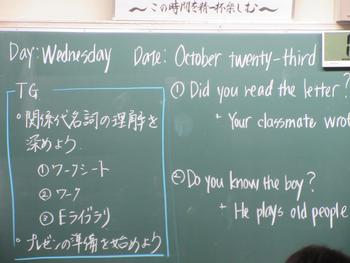 〜この時間を精一杯楽しむ〜
Day: Wednesday Date: October twenty-third
TG
・関係代名詞の理解を
深めよう
①ワークシート
②ワーク
③Eライブラリ
・プレゼンの準備を始めよう
① Did you read the letter?
+ Your classmate wrot
② Do you know the boy?
+ He plays old people